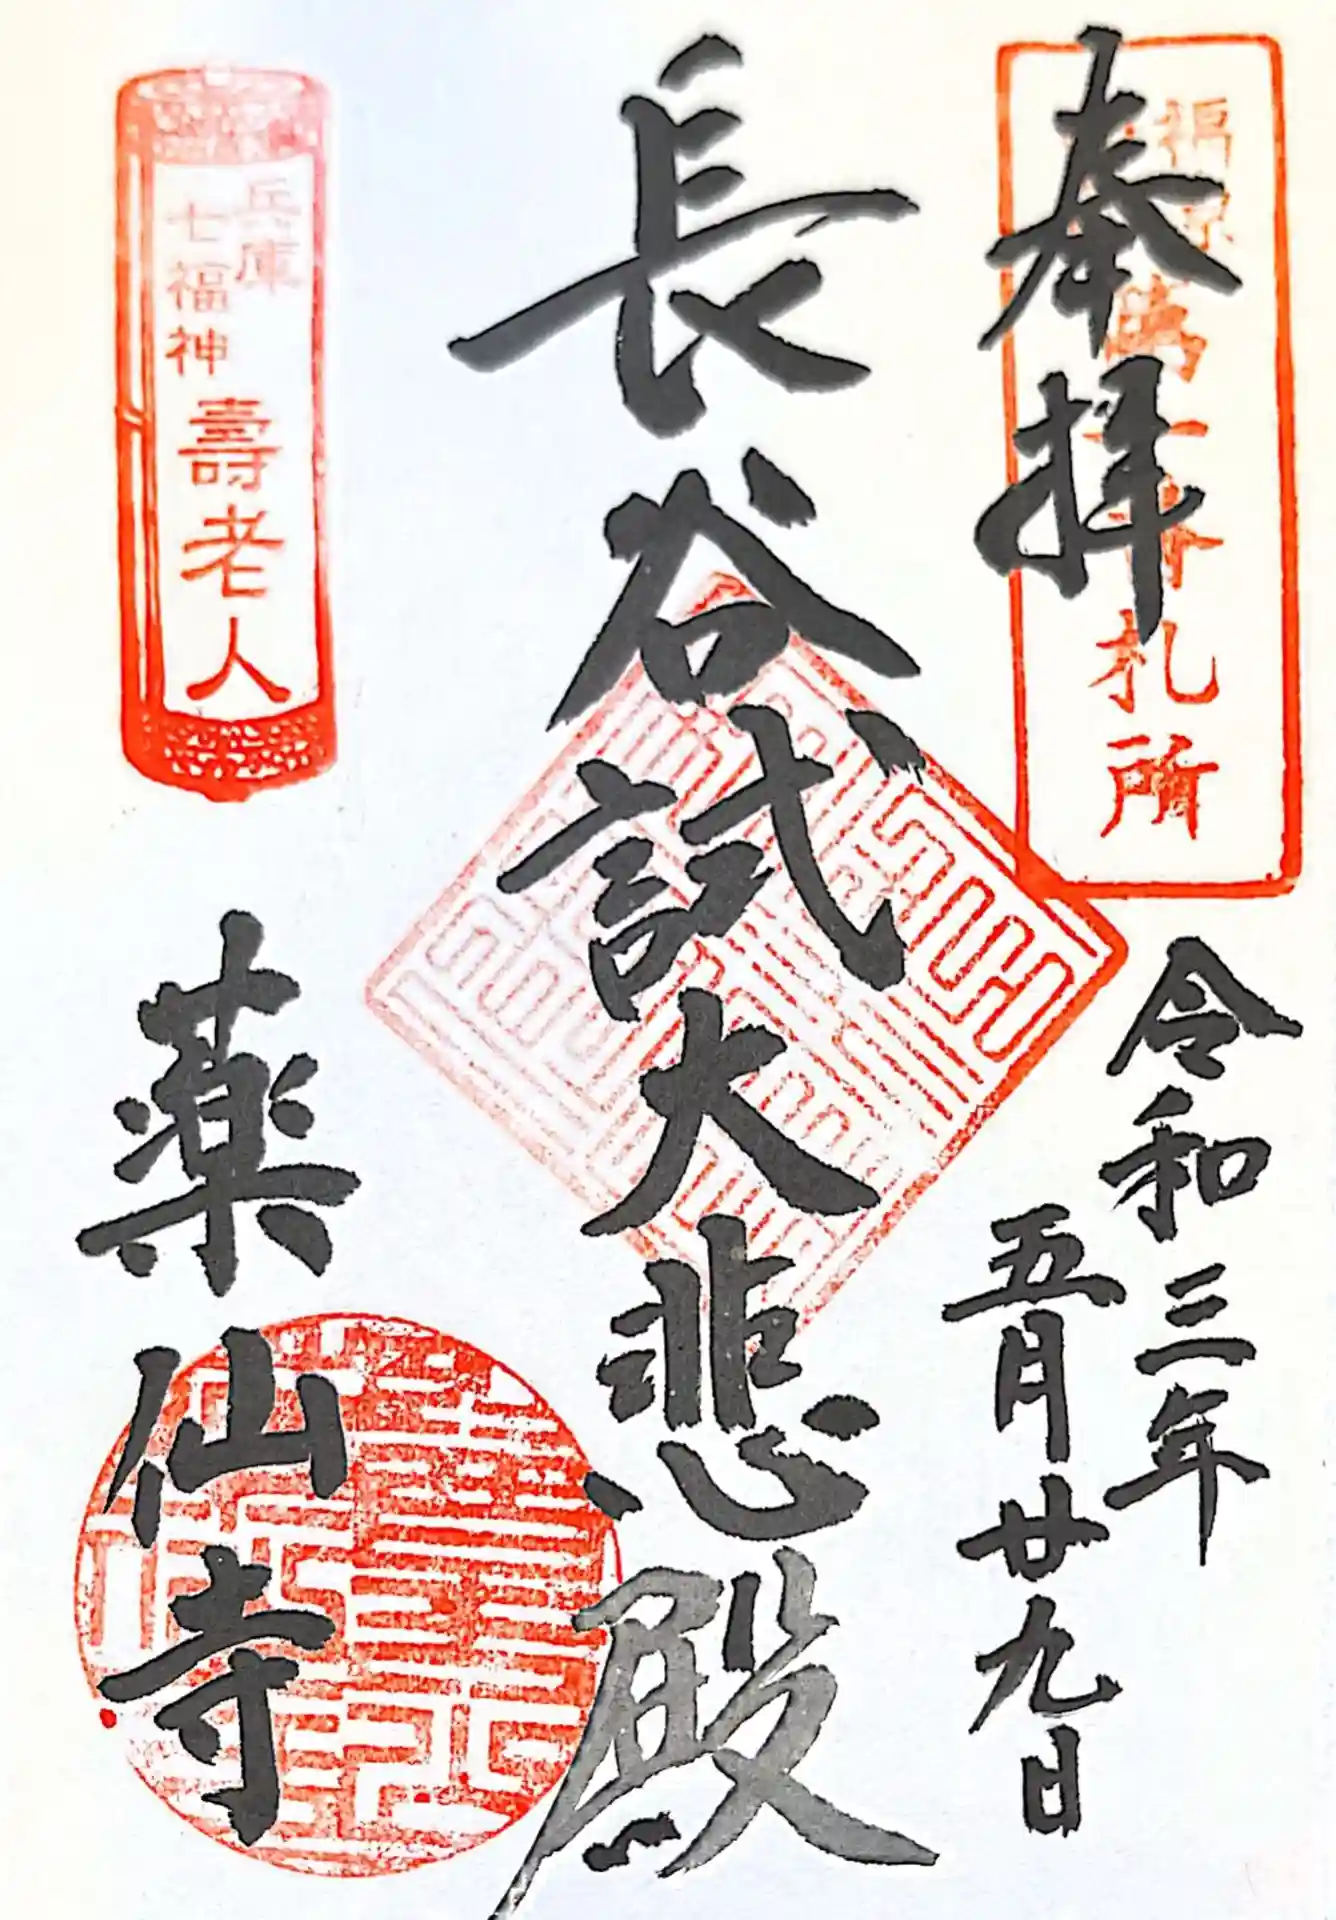 奉拝
福
札所
令和三年
五月廿九日
長谷試大悲殿
兵庫
七福神
壽老人
薬仙寺